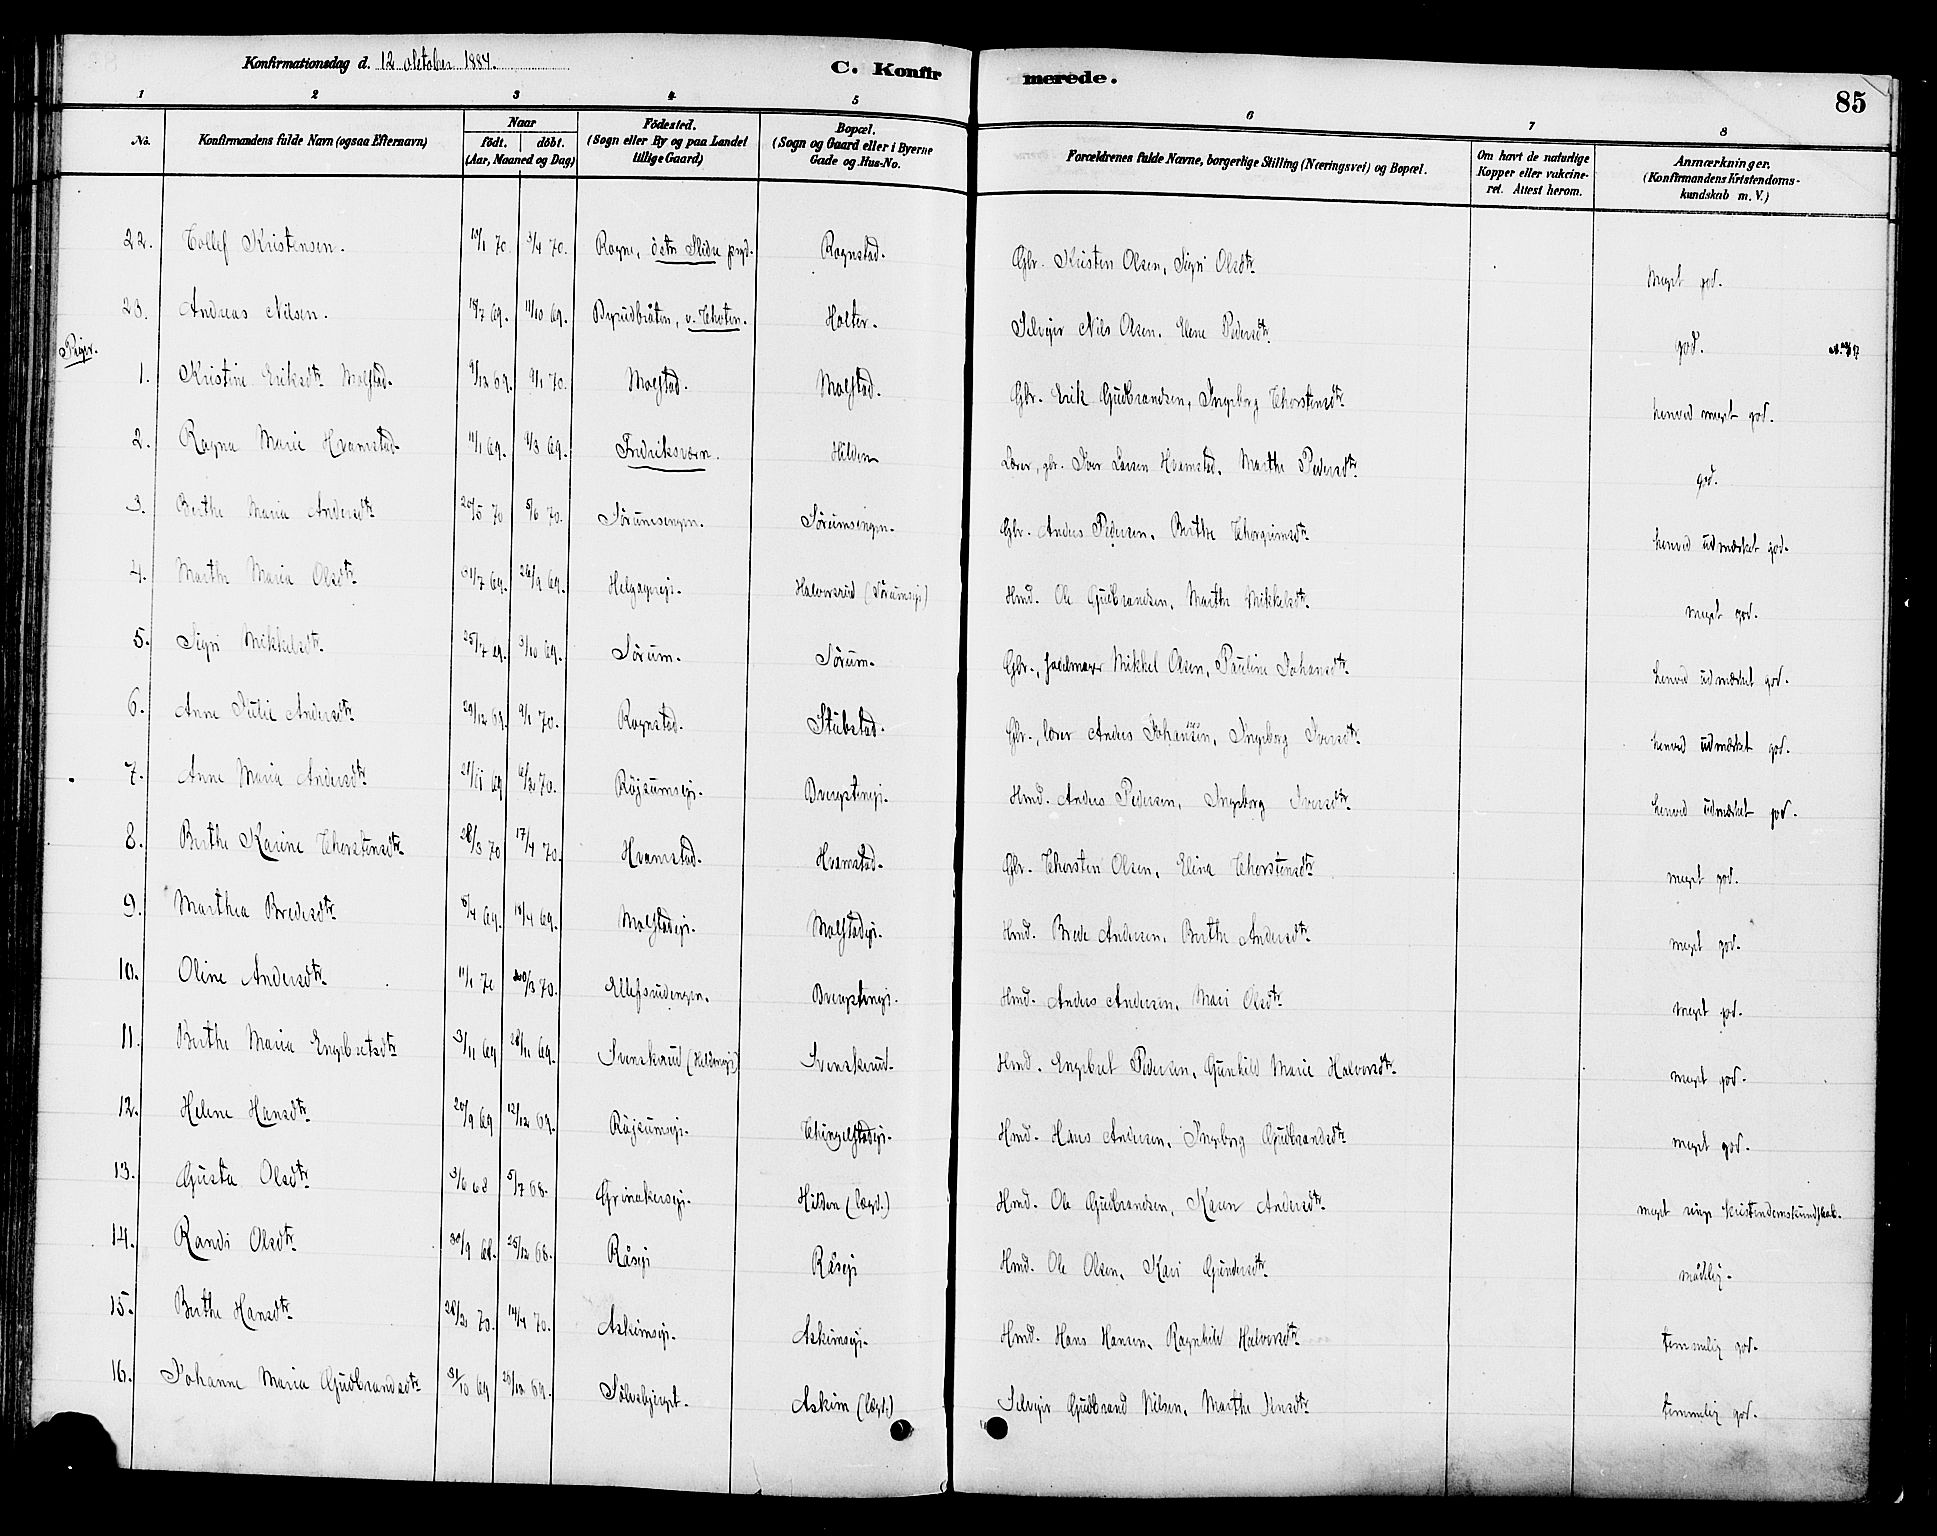 Konfirmationsdag d. 12 oktober 1884.
C. Konfirmerede.
85
1 2 3 4 5 6 7 8
No. Konfirmandens fulde Navn (ogsaa Efternavn) Naar födt. döbt. (Aar, Maaned og Dag) Födested. (Sogn eller By og paa Landet tillige Gaard) Bopæl. (Sogn og Gaard eller i Byerne Gade og Hus-No. Forældrenes fulde Navne, borgerlige Stilling (Næringsvei) og Bopæl. Om havt de naturlige Kopper eller vakcineret. Attest herom. Anmærkninger. (Konfirmandens Kristendomskundskab m. V.)
22. Tollef Kristensen. 13/1 70. 3/4 70. Rogne, östr Slidre pgd. Rognstad. Gbr. Kristen Olsen, Sigri Olsdtr meget god.
23. Andreas Nilsen. 18/7 69. 11/10 69. Byrudbråten, v. Thoten. Holter. Selvejer Nils Olsen. Elene Pedersdtr god.
Piger.
1. Kristine Eriksdtr Molstad. 9/12 69. 9/1 70. Molstad. Molstad. Gbr. Erik Gudbrandsen, Ingeborg Thorstensdtr henved meget god.
2. Ragna Marie Hvamstad. 11/1 69. 9/3 69. Fredriksværn. Hilden Lærer, gbr. Iver Larsen Hvamstad, Marthe Pedersdtr god.
3. Berthe Maria Andersdtr 20/5 70 5/6 70. Sörumsengen. Sörumsengen. Gbr. Anders Pedersen, Berthe Thorgrimsdtr henved udmærket god.
4. Marthe Maria Olsdtr 31/7 69. 26/9 69. Helgagerejr. Halvorsrud (Sörumsejr) Hmd. Ole Gudbrandsen, Marthe Mikkelsdtr meget god.
5. Sigri Mikkelsdtr 25/7 69. 3/10 69. Sörum. Sörum. Gbr., Mikkel Olsen, Pauline Johansdtr. henved udmærket god.
6. Anne Julie Andersdtr 29/12 69. 9/1 70. Rognstad. Stubstad. Gbr., lærer Anders Johansen, Ingeborg Iversdtr. henved udmærket god.
7. Anne Maria Andersdtr 21/11 69 6/2 70. Röjsumsejr. Dvergstenejr. Hmd. Anders Pedersen, Ingeborg Iversdtr. henved udmærket god.
8. Berthe Karine Thorstensdtr. 28/3 70 17/4 70. Hvamstad. Hvamstad. Gbr. Thorsten Olsen, Elina Thorstensdtr meget god.
9. Marthea Bredesdtr 8/4 69. 18/4 69. Molstadejr. Molstadejr. Hmd. Brede Andersen, Berthe Andersdtr. meget god.
10. Oline Andersdtr. 11/1 70 20/3 70. Ellefsrudengen. Dvergstenejr. Hmd. Anders Andersen, Mari Olsdtr meget god.
11. Berthe Maria Engebretsdtr 3/11 69 28/11 69. Svenskerud (Hildenejr) Svenskerud. Hmd. Engebret Pedersen, Gunhild Marie Halvorsdtr. meget god.
12. Helene Hansdtr 20/9 69 12/12 69. Röjsumsejr. Thingelstadejr. Hmd. Hans Andersen, Ingeborg Gudbrandsdtr meget god.
13. Gusta Olsdtr 3/6 68 5/7 68. Grinakersejr. Hilden (lægd.) Hmd. Ole Gudbrandsen, Karen Andersdtr. meget ringe kristendomskundskab.
14. Randi Olsdtr. 30/9 68. 25/12 68. Råsejr Råsejr Hmd. Ole Olsen, Kari Gundersdtr. mådelig.
15. Berthe Hansdtr. 28/2 70. 14/4 70. Askimsejr. Askimsejr. Hmd. Hans Hansen, Ragnhild Halvorsdtr temmelig god.
16. Johanne Maria Gudbrandsdtr 31/10 69 26/12 69. Sölvsbjergt. Askim (lægd.) Selvejer Gudbrand Nilsen, Marthe Jensdtr temmelig god.